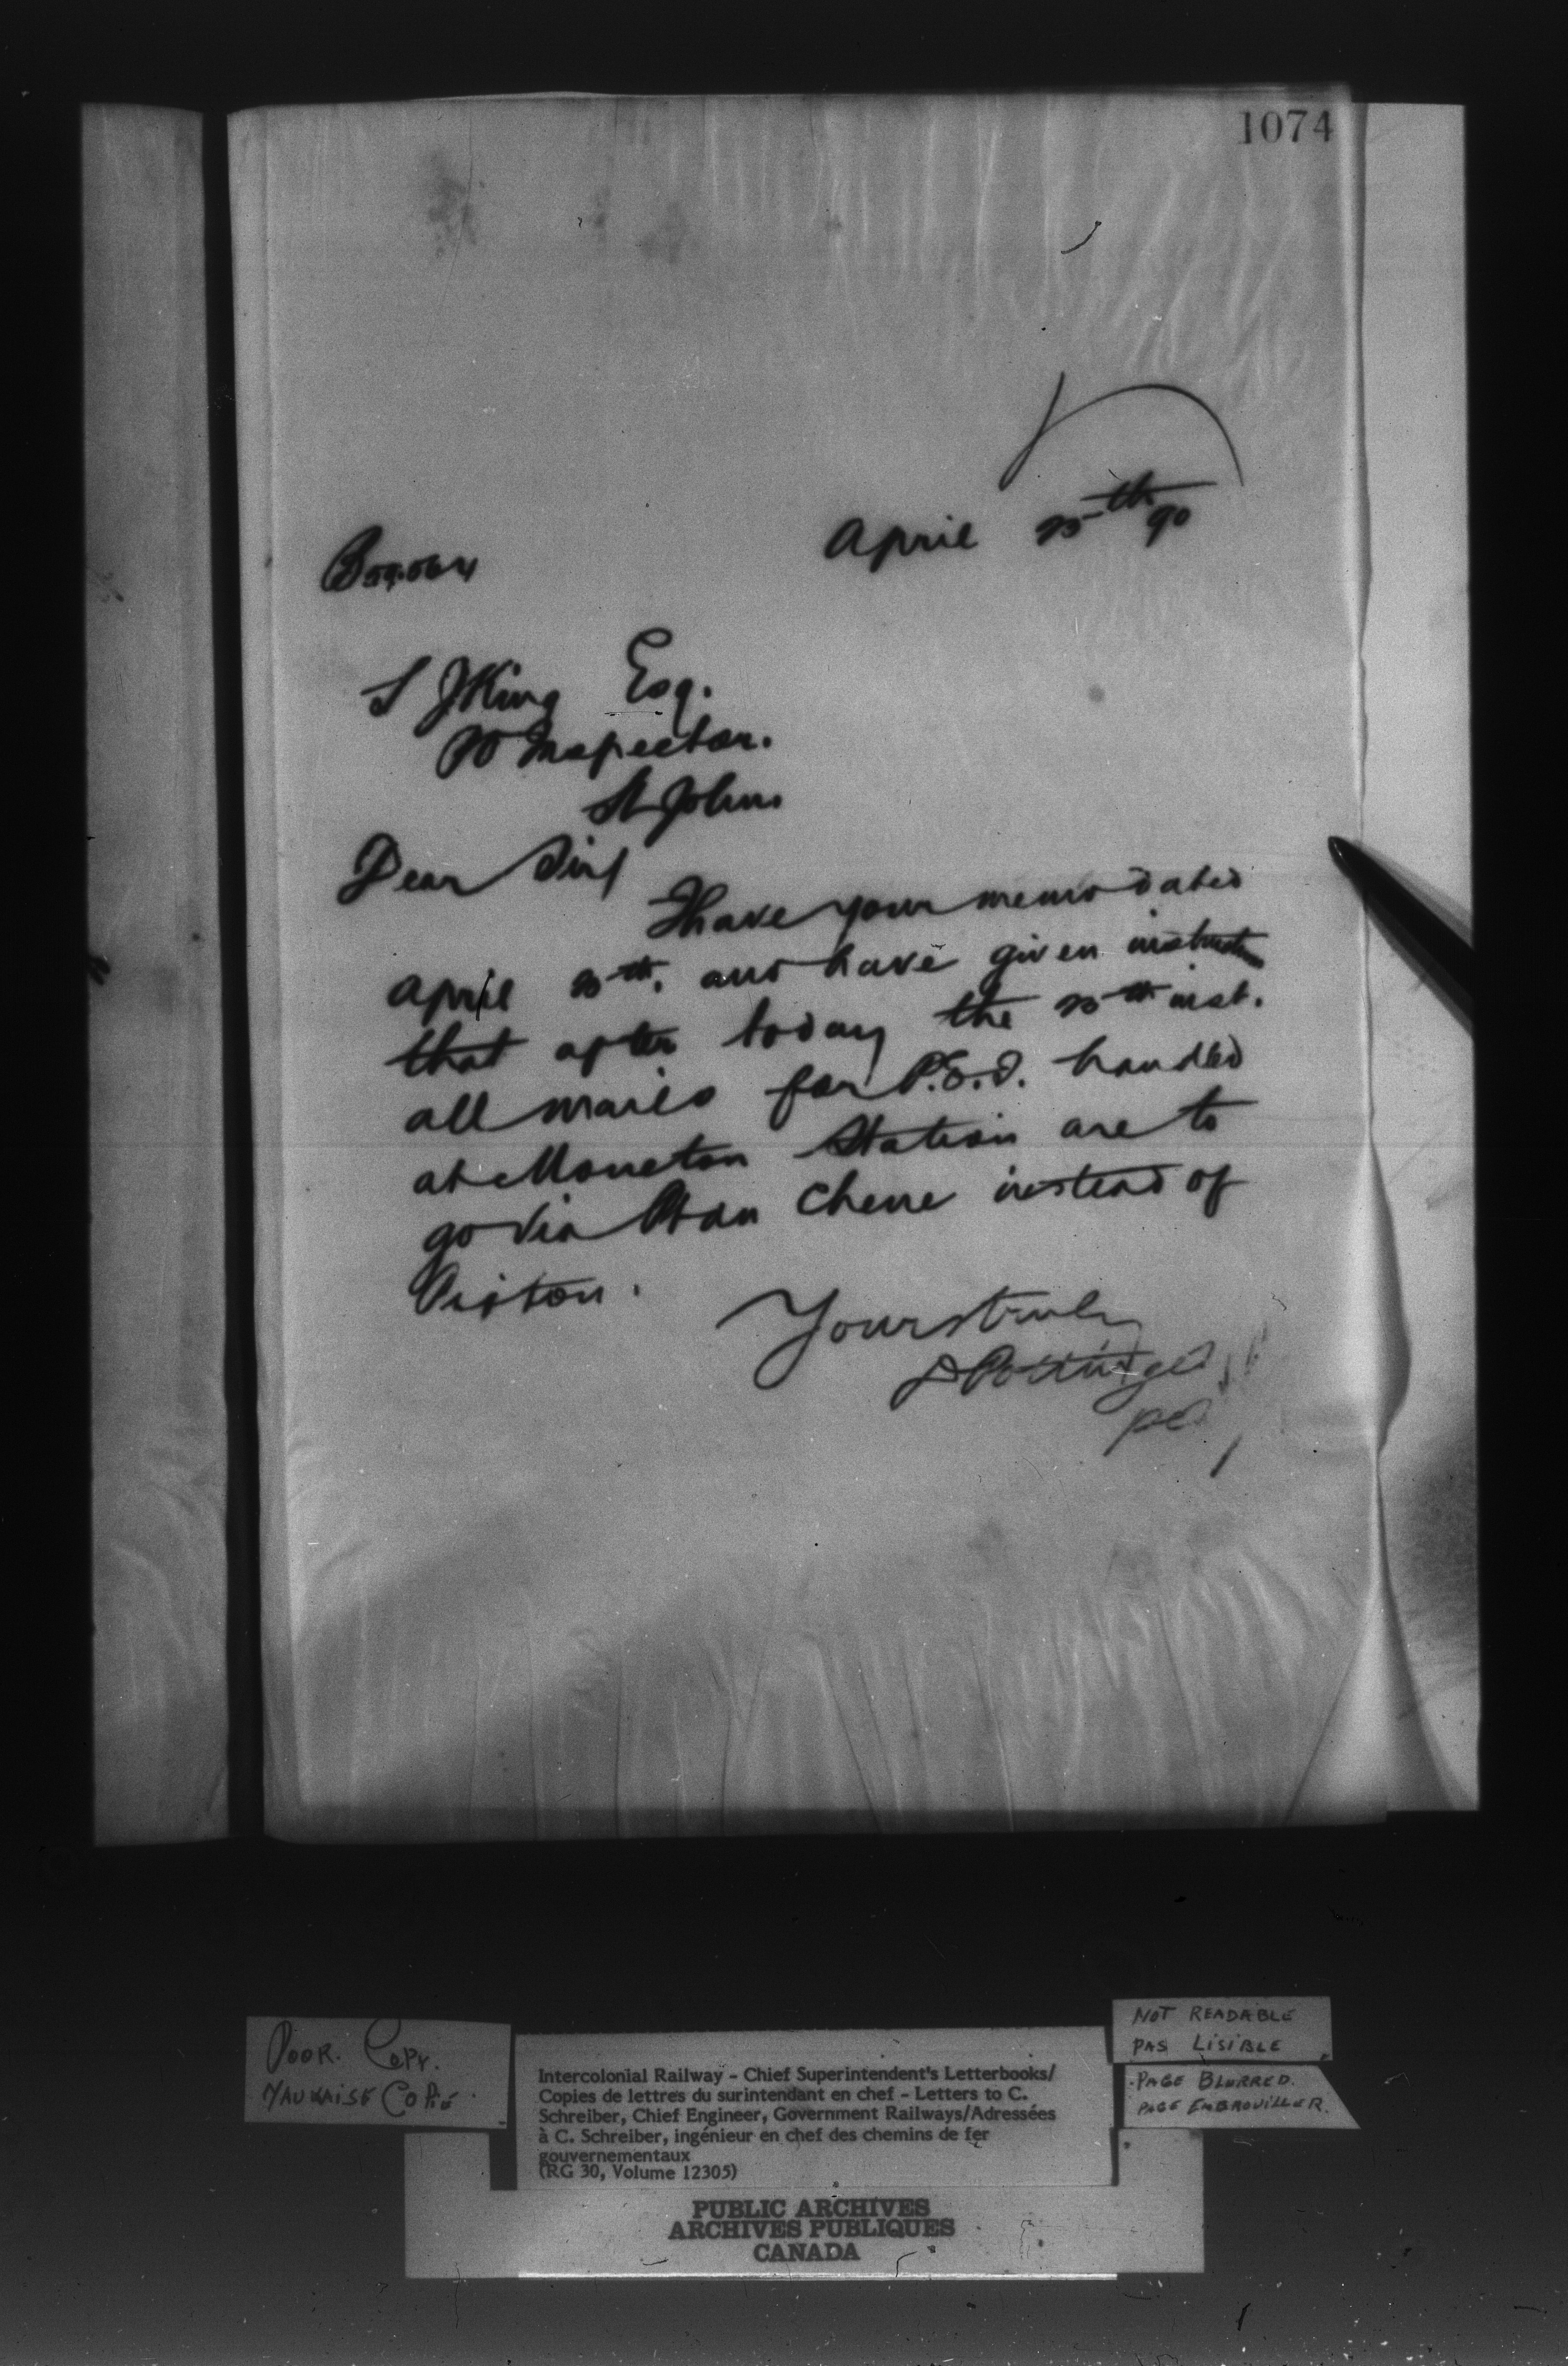 1074
April 25th 90
S J King Esq.
PO Inspector.
St John.
Dear Sir/
I have your memo dated
April 25th. and have given instruction
that after today the 25th inst.
all mails for P.E.I. handled
at Moncton Station are to
go via Pt du Chene instead of
Pictou.
Yours truly
D Pottinger
per
POOR. COPY.
MAUVAISE COPIE.
Intercolonial Railway - Chief Superintendent's Letterbooks/
Copies de lettres du surintendant en chef - Letters to C.
Schreiber, Chief Engineer, Government Railways/Adressées
à C. Schreiber, ingénieur en chef des chemins de fer
gouvernementaux
(RG 30, Volume 12305)
NOT READABLE
PAS LISIBLE
PAGE BLURRED.
PAGE EMBROUILLER.
PUBLIC ARCHIVES
ARCHIVES PUBLIQUES
CANADA